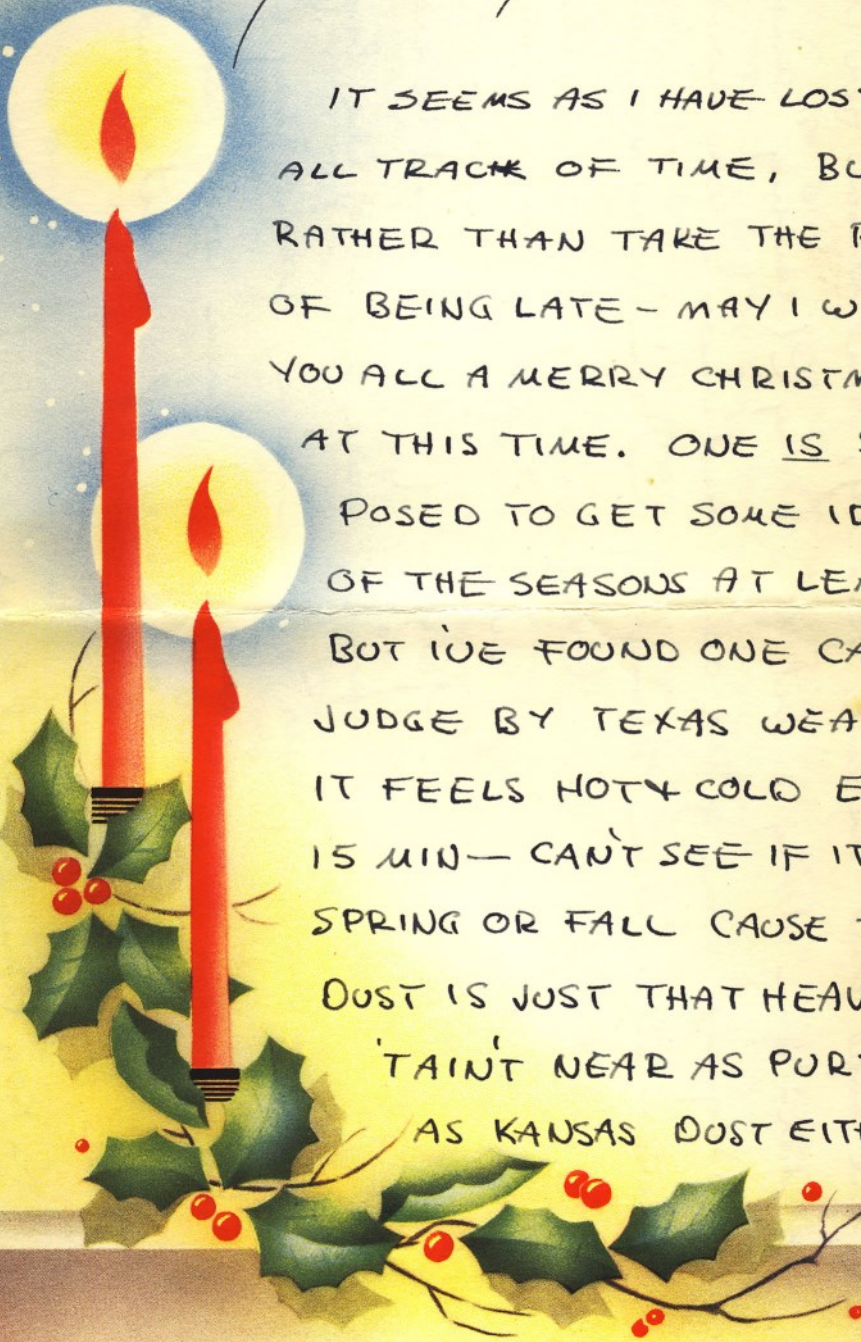 IT SEEMS AS I HAVE LOST
ALL TRACK OF TIME, BU
RATHER THAN TAKE THE
OF BEING LATE – MAY I W
YOU ALL A MERRY CHRISTM
AT THIS TIME. ONE IS S
POSED TO GET SOME ID
OF THE SEASONS AT LEA
BUT I'VE FOUND ONE CA
JUDGE BY TEXAS WEA
IT FEELS HOT & COLD E
15 MIN — CAN'T SEE IF IT
SPRING OR FALL CAUSE
DUST IS JUST THAT HEAV
'TAIN'T NEAR AS PUR
AS KANSAS DUST EITH